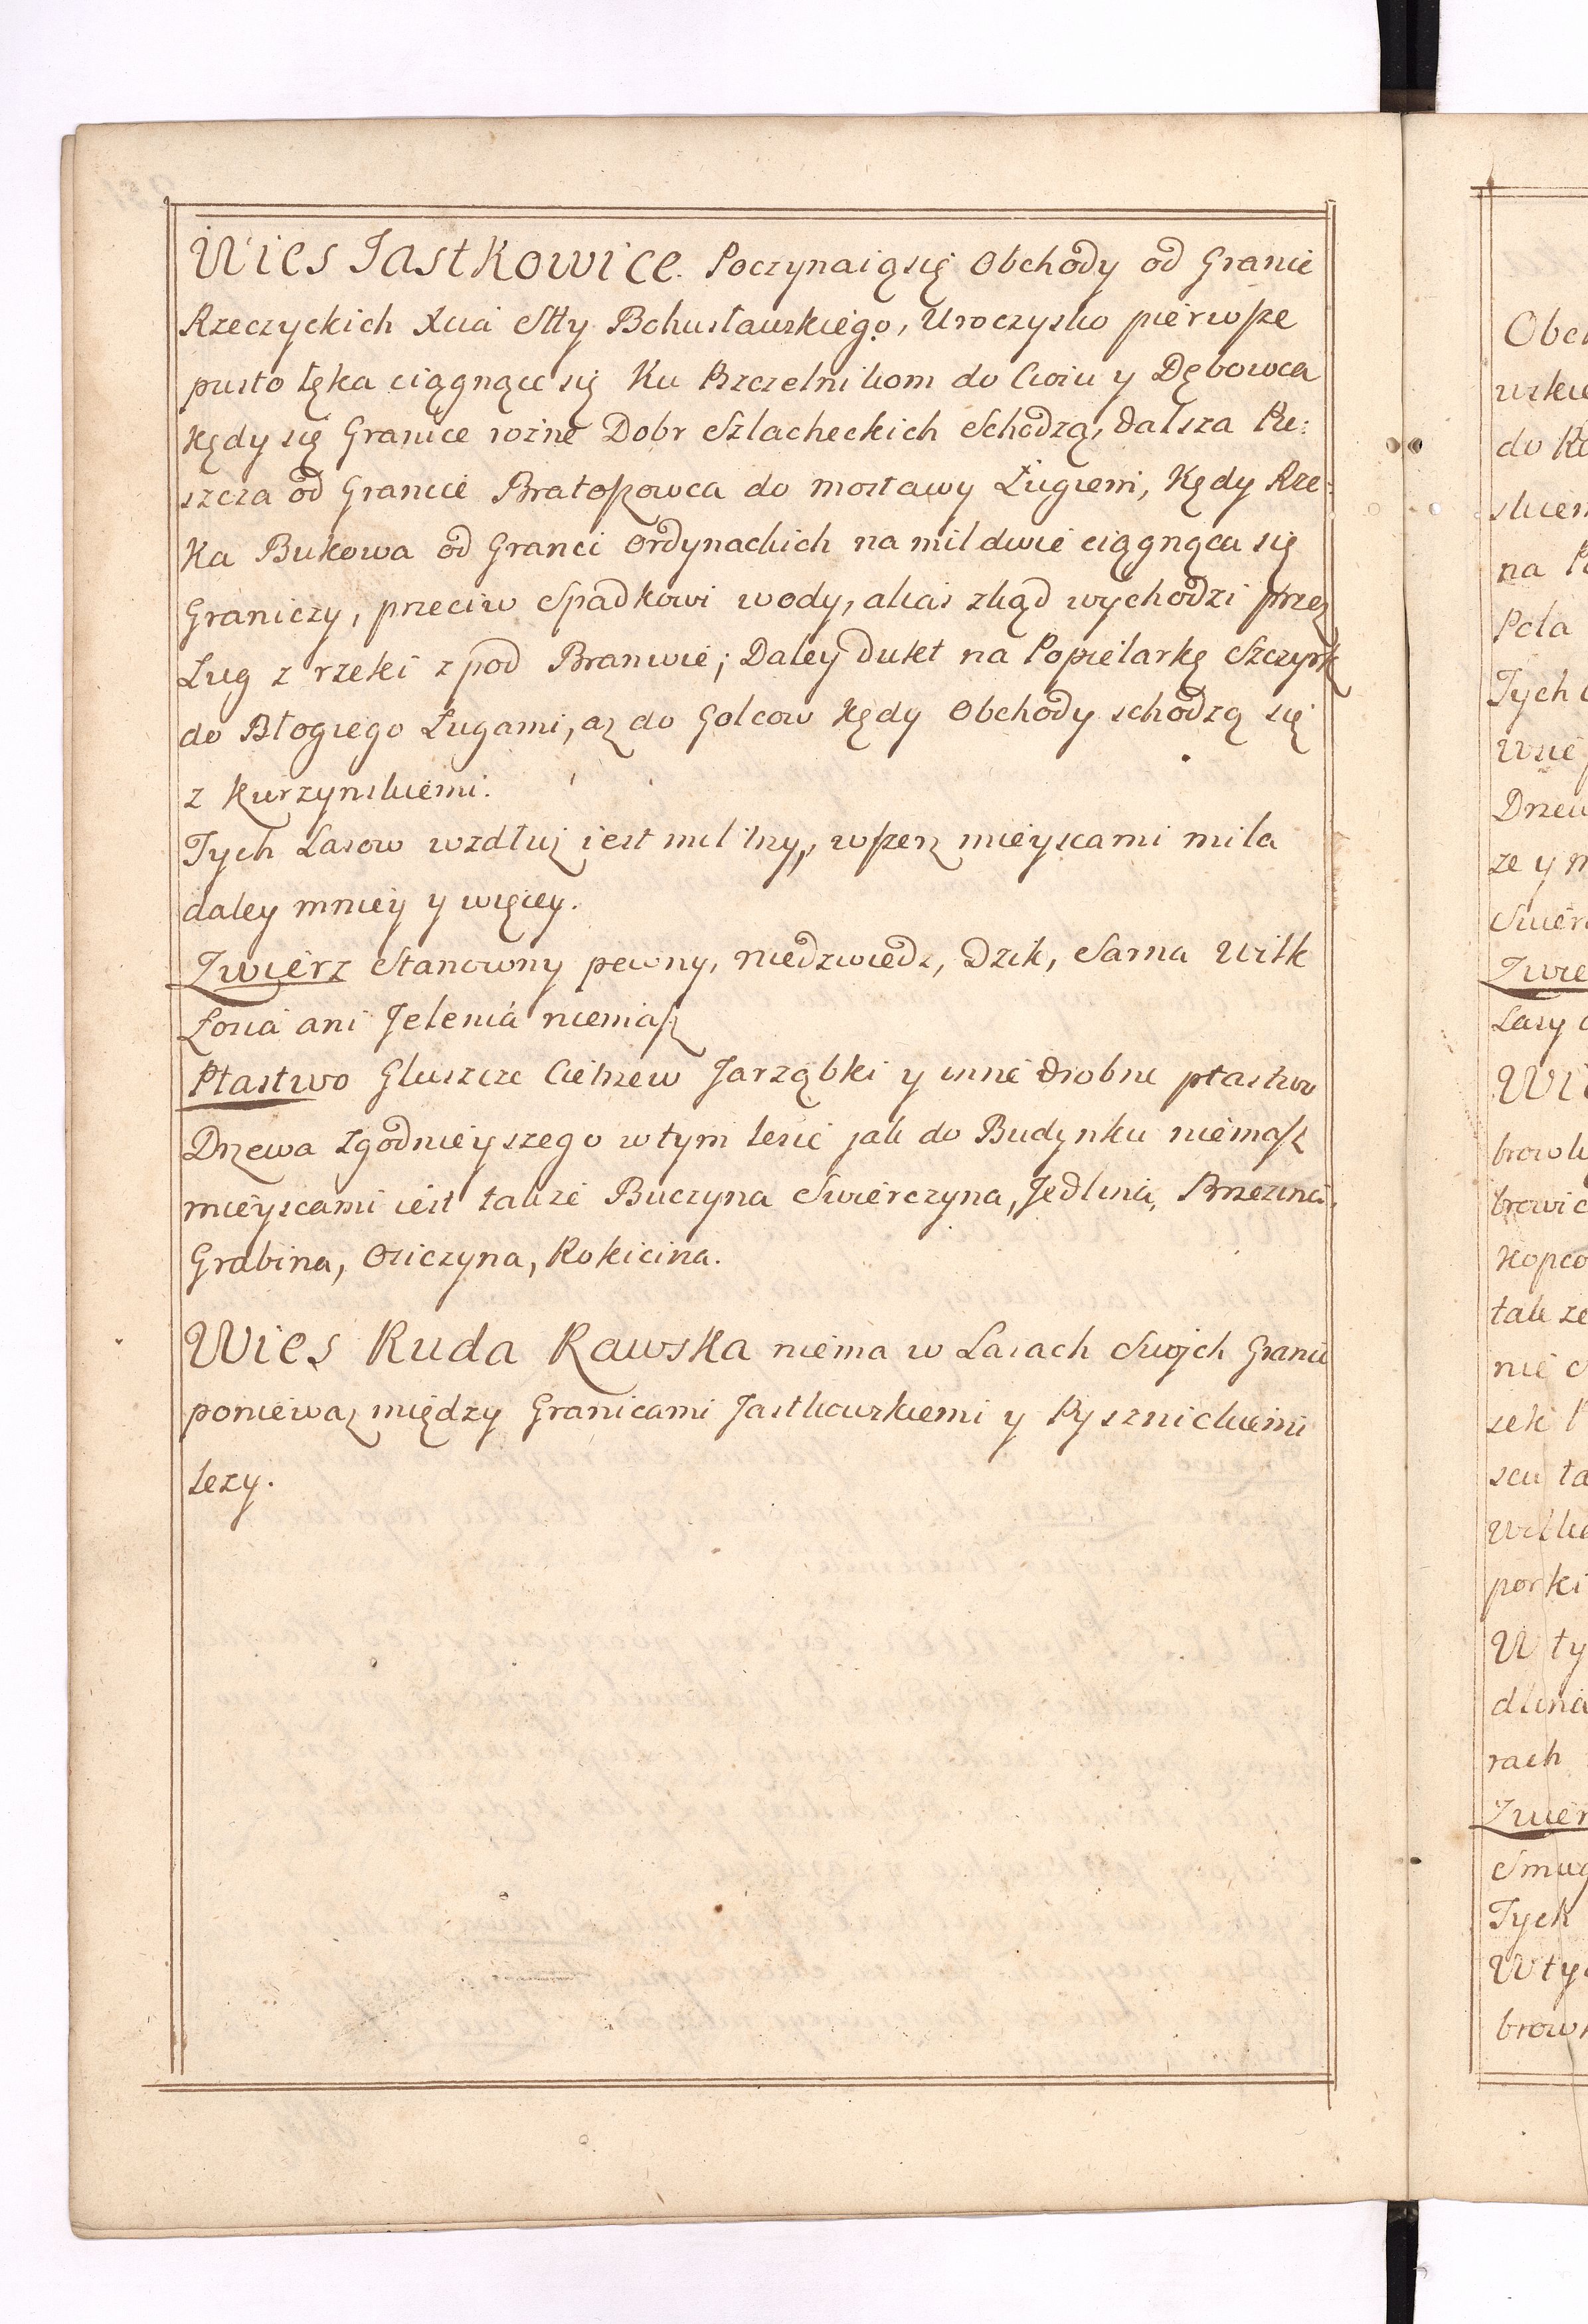 Wies Jastkowice. Poczynaią się Obchody od Granic
Rzeczyckich Xcia Stty Bohusławskiego, Uroczysko pierwsze
pusto łęka ciągnące się Ku Pszczelnikom do Cwiu y Dębowca
Kędy się Granice rożne Dobr Szlacheckich Schodzą, dalsza Pu:
szcza od Granicie Bratoszowca do mostawy Ługiem, Kędy Rze:
Ka Bukowa od Granci Ordynackich na mil dwie ciągnąca się
Graniczy, przeciw Spadkowi wody, alias zkąd wychodzi przez
Ług z rzeki z pod Branwie; Daley dukt na Popielarkę Szczyrk
do Błogiego Ługami, aż do Golcow Kędy Obchody schodzą się
z Kurzynskiemi.
Tych Lasow wzdłuż iest mil trzy, wszerz mieyscami mila
daley mniey y więcey.
Zwierz Stanowny pewny, niedzwiedz, Dzik, Sarna Wilk
Łosia ani Jelenia niemasz
Ptastwo Gluszcze Cietrzew Jarząbki y inne drobne ptastwo
Drzewa zgodnieyszego w tym lesie jak do Budynku niemasz
mieyscami iest takze Buczyna Swierczyna, Jedlina, Brzezina,
Grabina, Osiczyna, Rokicina.
Wies Ruda Rawska niema w Lasach Swojch Granic
poniewaz między Granicami Jastkowskiemi y Pysznickiemi
lezy.
Obch
wskie
do
na
Pola
Tych
Drzew
ze y
Swier
Zwie
Lasy
Wi
browic
Kopco
tak ze
nie
sek
scu ta
porki
W ty
dlina
rach
Zwier
Smug
Tych
W ty
brow